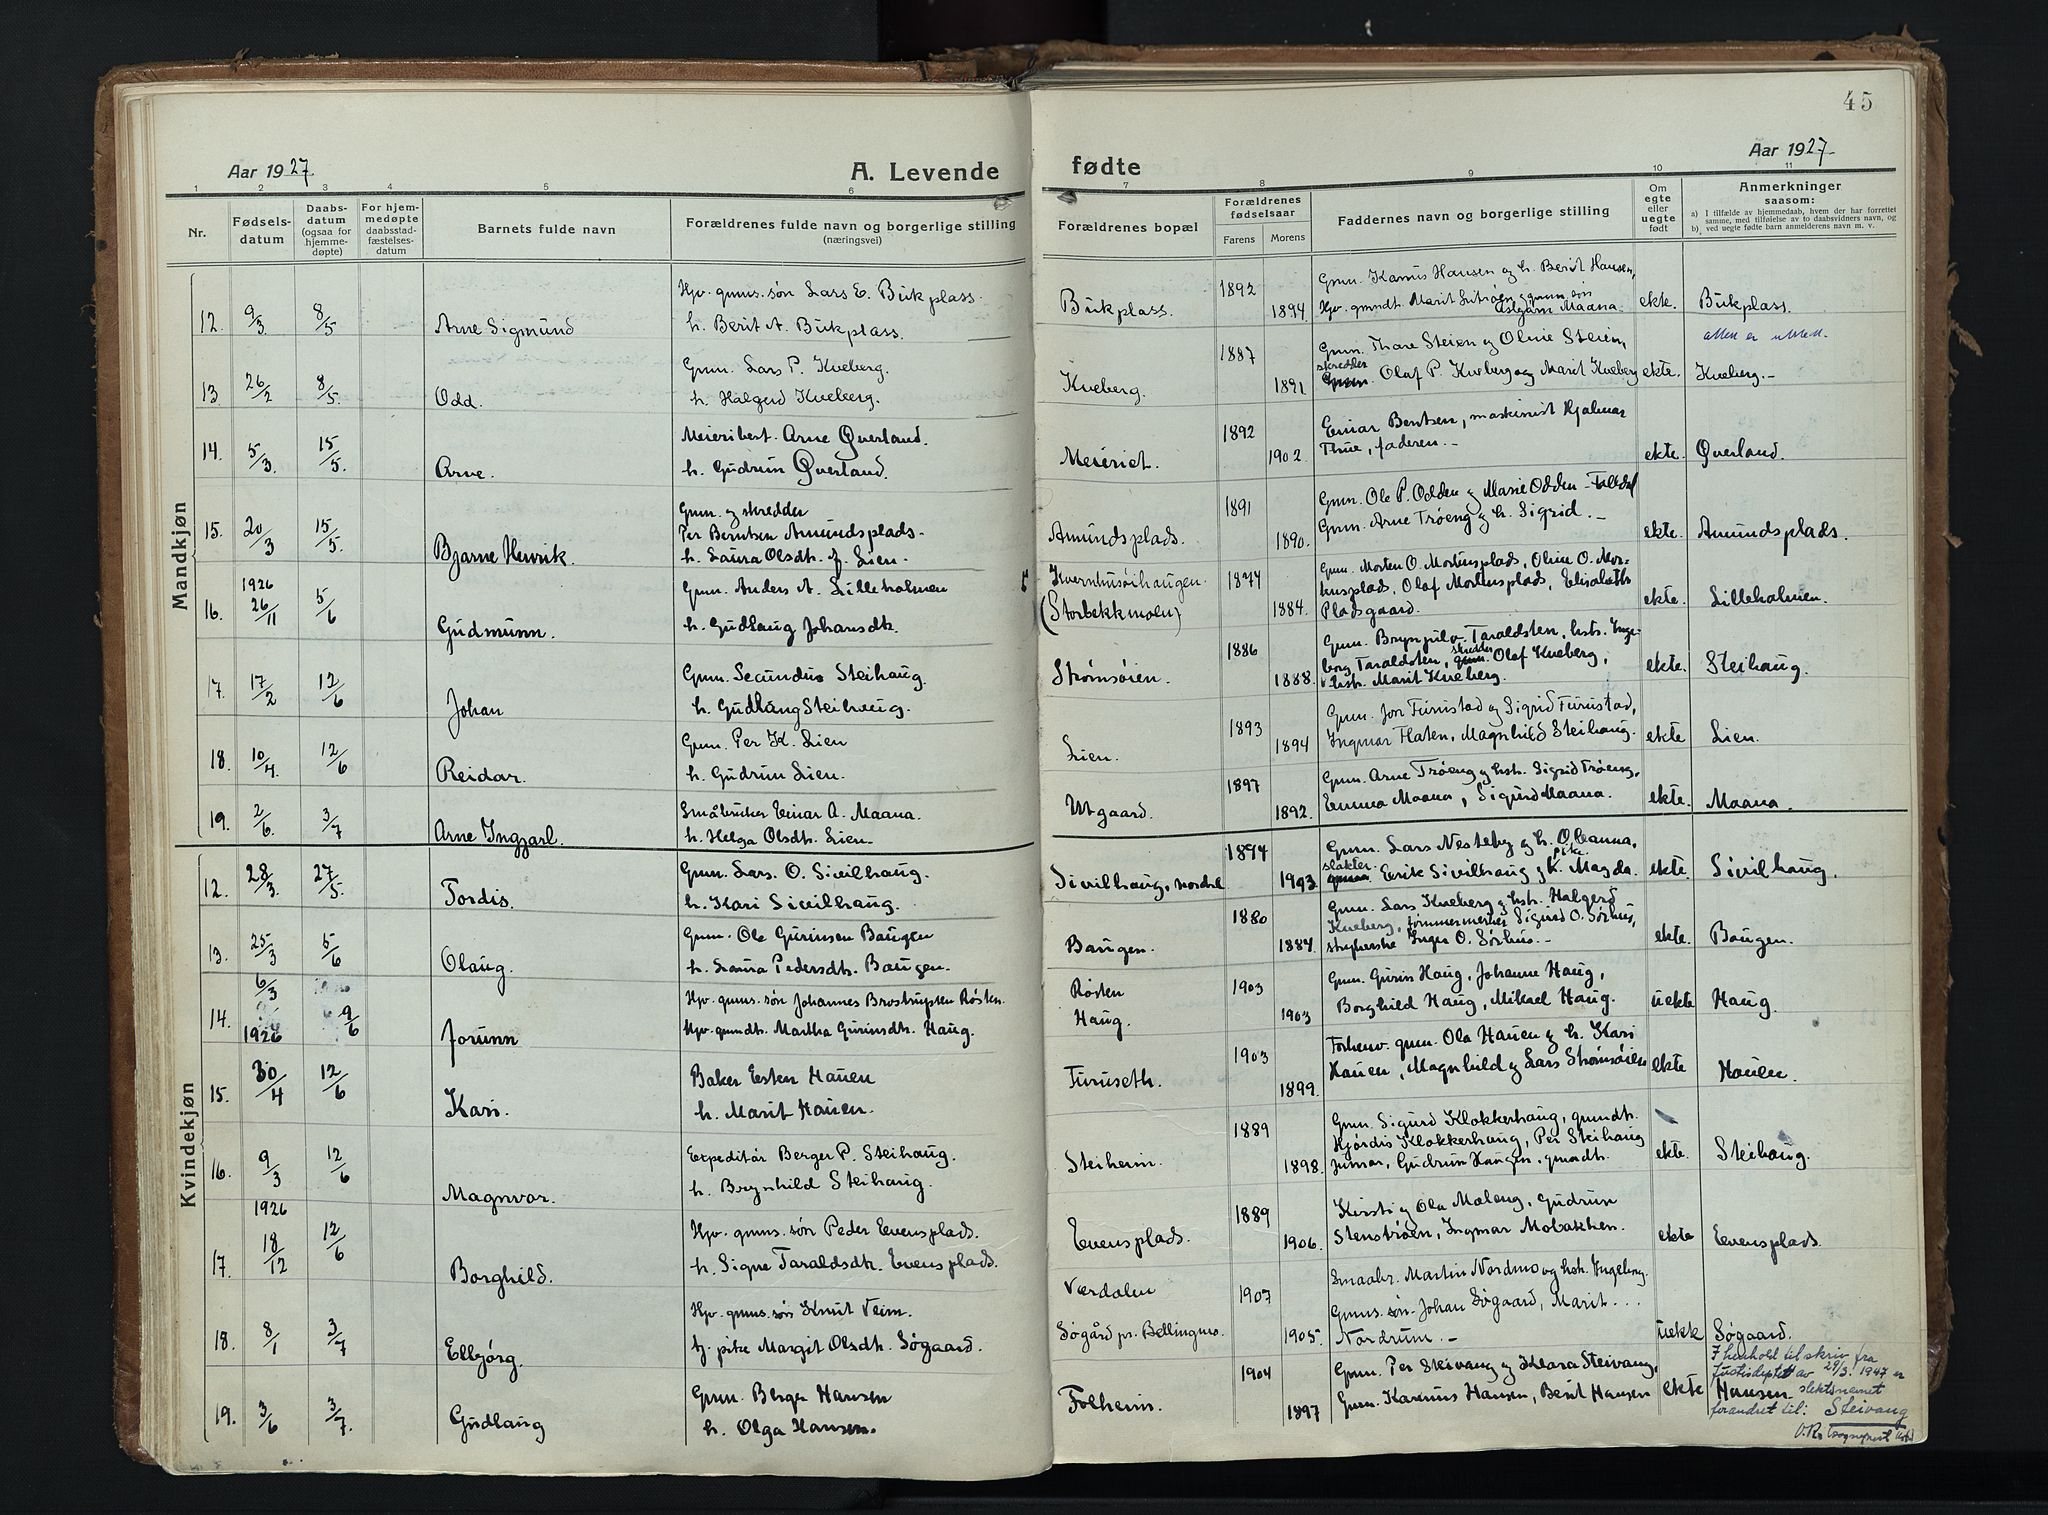 45
Aar 1927
A. Levende
fødte
Aar 1927
1 2 3 4 5 6 7 8 9 10 11
Nr.
Fødsels-
datum
Daabs-
datum
(ogsaa for
hjemme-
døpte)
For hjem-
medøpte
daabsstad-
fæstelses-
datum
Barnets fulde navn
Forældrenes fulde navn og borgerlige stilling
(næringsvei)
Forældrenes bopæl
Forældrenes
fødselsaar
Farens Morens
Faddernes navn og borgerlige stilling
Om
egte
eller
uegte
født
Anmerkninger
saasom:
a) I tilfælde av hjemmedaab, hvem der har forrettet
samme, med tilføielse av to daabsvidners navn, og
b) ved uegte fødte barn anmelderens navn m. v.
Mandkjøn
12. 9/3 8/5 Arne Sigmund
Hjv. gmns. søn Lars E. Bukplass.
h. Berit A. Bukplass.
Bukplass. 1892 1894
Gmn. Kamus Hansen og h. Berit Hansen,
Hjv. gmndt. Marit gmn. søn
Maana.
ekte. Bukplass.
13. 26/2 8/5 Odd.
Gmn. Lars P. Kveberg.
h. Halgerd Kveberg.
Kveberg. 1887 1891
Gmn. Thore Steien og Oline Steien,
skredder Olaf P. Kveberg og Marit Kveberg
ekte. Kveberg.-
attest er utsted.
14. 5/3 15/5. Arne.
Meieribest. Arne Øverland.
h. Gudrun Øverland.
Meieriet. 1892 1902.
Einar Berntsen, maskinist Hjalmar
Thue, faderen.-
ekte. Øverland.
15. 20/3 15/5. Bjarne Henrik.
Gmn. og skredder
Per Berntsen Amundsplads-
h. Laura Olsdt. f. Lien-
Amundsplads. 1891 1890.
Gmn. Ole P. Odden og Marie Odden-
Gmn. Arne Trøeng og h. Sigrid.-
ekte. Amundsplads.
16. 1926 26/11 5/6 Gudmunn.
Gmn. Anders A. Lilleholmen
h. Gudlaug Johansdt.
Kvernhusøihaugen.
(Storbekkmoen) 1874 1884.
Gmn. Morten O. Mortensplads, Oline O. Mor-
tensplads, Olaf Mortensplads, Elisabeth
Pladsgaard.
ekte. Lilleholmen.
17. 17/2 12/6 Johan
Gmn. Secundus Steihaug.
h. Gudlaug Steihaug.
Strømsøien. 1886 1888.
Gmn. Brynjulv Taraldsten, hstr. Inge-
borg Taraldsten, skredder gmn. Olaf Kveberg,
hstr. Marit Kveberg.
ekte. Steihaug.
18. 10/4. 12/6 Reidar.
Gmn. Per K. Lien
h. Gudrun Lien.
Lien. 1893 1894
Gmn. Jon Furustad og Sigrid Furustad,
Ingmar Flaten, Magnhild Steihaug.
ekte Lien.
19. 2/6. 3/7 Arne Ingjarl.
Småbruker Einar A. Maana.
h. Helga Olsdt. Lien-
Utgaard. 1897 1892.
Gmn. Arne Trøeng og hstr. Sigrid Trøeng,
Emma Maana, Sigurd Maana.
ekte. Maana.
Kvindekjøn
12. 28/3. 27/5. Tordis.
Gmn. Lars. O. Sivilhaug.
h. Kari Sivilhaug.
Sivilhaug, nordre 1894 1903
Gmn. Lars Nesteby og h. Oleanna,
slakter Erik Sivilhaug og pike K. Magda.
ekte. Sivilhaug.
13. 25/3 5/6 Olaug.
Gmn. Ole Gurinsen Baugen
h. Laura Pedersdt. Baugen.
Baugen. 1880 1884.
Gmn. Lars Kveberg og hstr. Halgerd
Kveberg, tømmermerker Sigurd O. Sørhus,
strykerske Inger O. Sørhus.-
ekte. Baugen.
14. 6/3 1926 9/6 Jorunn
Hjv. gmns. søn Johannes Brostrupsen Røsten.
Hjv. gmndt. Martha Gurinsdt. Haug.
Røsten
Haug. 1903 1903
Gmn. Gurin Haug, Johanne Haug,
Borghild Haug, Mikael Haug.
uekte Haug
15. 30/4 12/6 Kari.
Baker Esten Hauen
h. Marit Hauen.
Furuseth. 1903 1899.
Forhenv. gmn. Ola Hauen og h. Kari
Hauen, Magnhild og Lars Strømsøien
ekte Hauen.
16. 9/3 12/6 Magnvor.
Expeditør Berger P. Steihaug.
h. Brynhild Steihaug.
Steiheim. 1889 1898.
Gmn. Sigurd Klokkerhaug, gmndt.
Hjørdis Klokkerhaug, Per Steihaug
junior, Gudrun Haugen, gmndt.
ekte. Steihaug.
17. 1926 18/12 12/6 Borghild.
Hjv. gmns. søn Peder Evensplads.
h. Signe Taraldsdt. Evensplads.
Evensplads. 1889 1906.
Kirsti og Ola Maleng, Gudrun
Stenstrøen, Ingmar Mobakken.
ekte Evensplads
18. 8/1 3/7 Elbjørg.
Hjv. gmns. søn Knut Veim.
tj. pike Margit Olsdt. Søgaard.
Værdalen
Søgård pr. Bellingmo. 1907 1905
Smaabr. Martin Nordmo og hstr. Ingeborg.
Gmns. søn Johan Søgaard, Marit...
Nordrum.-
uekte Søgaard.
19. 3/6 3/7. Gudlaug
Gmn. Berger Hansen
h. Olga Hansen.
Folheim. 1904 1897
Gmn. Per Steivang og Klara Steivang,
Gmn. Kamus Hansen, Berit Hansen
ekte Hansen
I henhold til skriv fra
Justisdeptet av 29/3. 1947 er
slektsnavnet
forandret til: Steivang